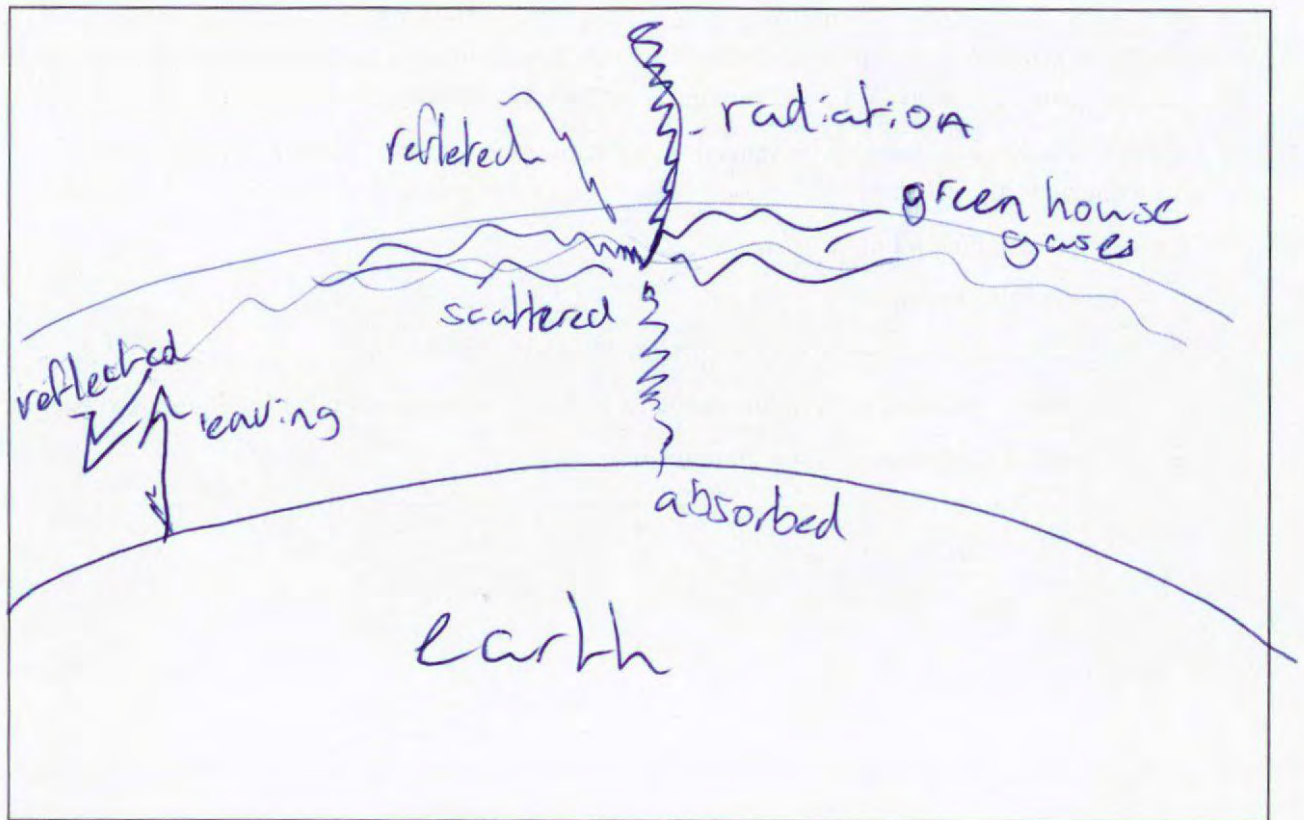 refleted
radiation
green house
gases
scattered
reflected
leaving
absorbed
earth